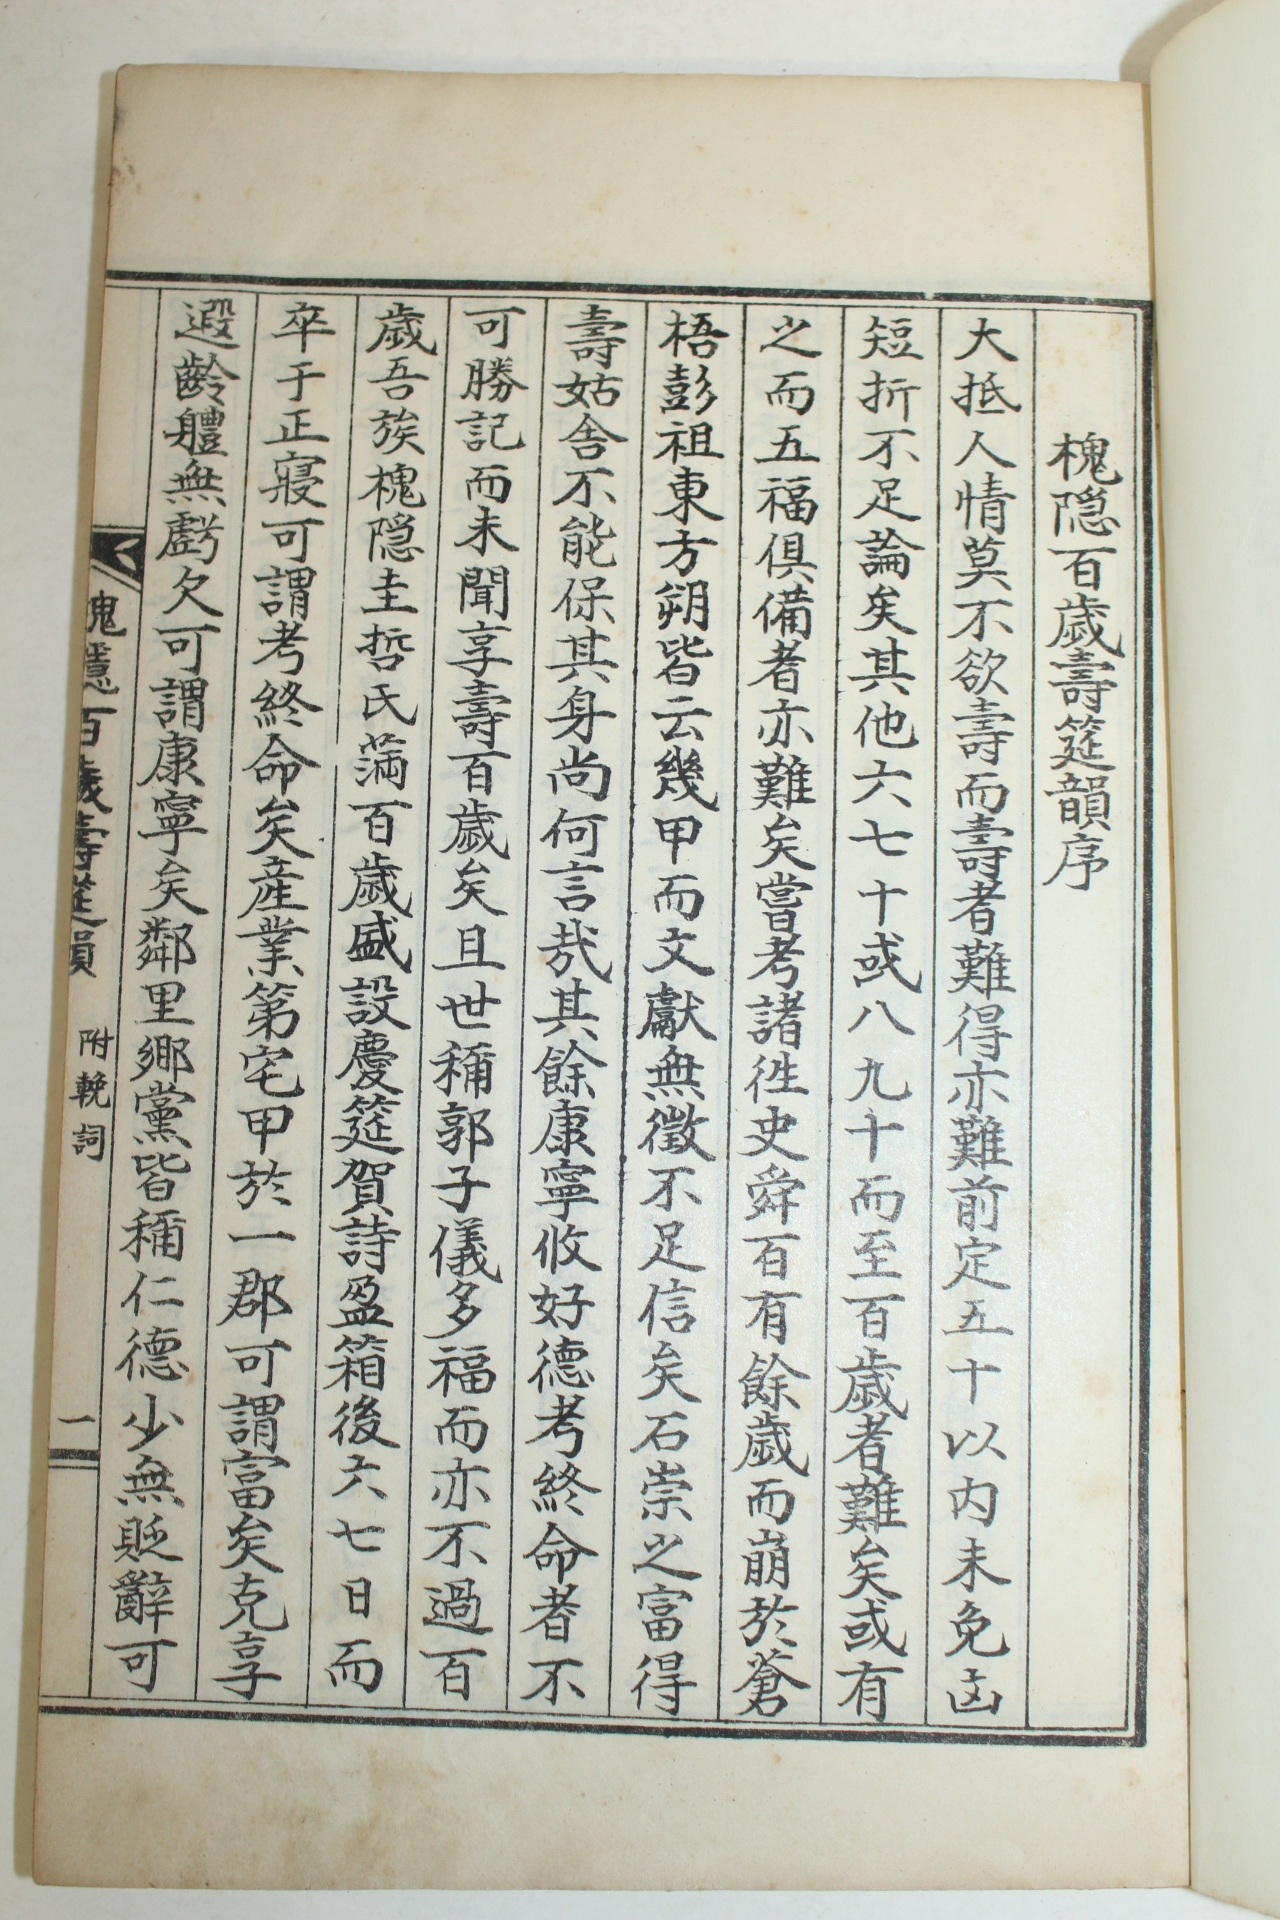 槐隐百歲壽筵韻序
大抵人情莫不欲壽而壽者難得亦難前定五十以內未免凶
短折不足論矣其他六七十或八九十而至百歲者難矣或有
之而五福俱備者亦難矣嘗考諸徃史舜百有餘歲而崩於蒼
梧彭祖東方朔皆云幾甲而文獻無徵不足信矣石崇之富得
壽姑舍不能保其身尚何言㢤其餘康寧攸好德考終命者不
可勝記而未聞享壽百歲矣且世稱郭子儀多福而亦不過百
歲吾族槐隐圭哲氏滿百歲盛設慶筵賀詩盈箱後六七日而
卒于正寢可謂考終命矣産業第宅甲於一郡可謂富矣克享
遐齡軆無虧欠可謂康寧矣鄰里鄉黨皆稱仁德少無貶辭可
槐隱百歲壽筵韻 附輓詞 一